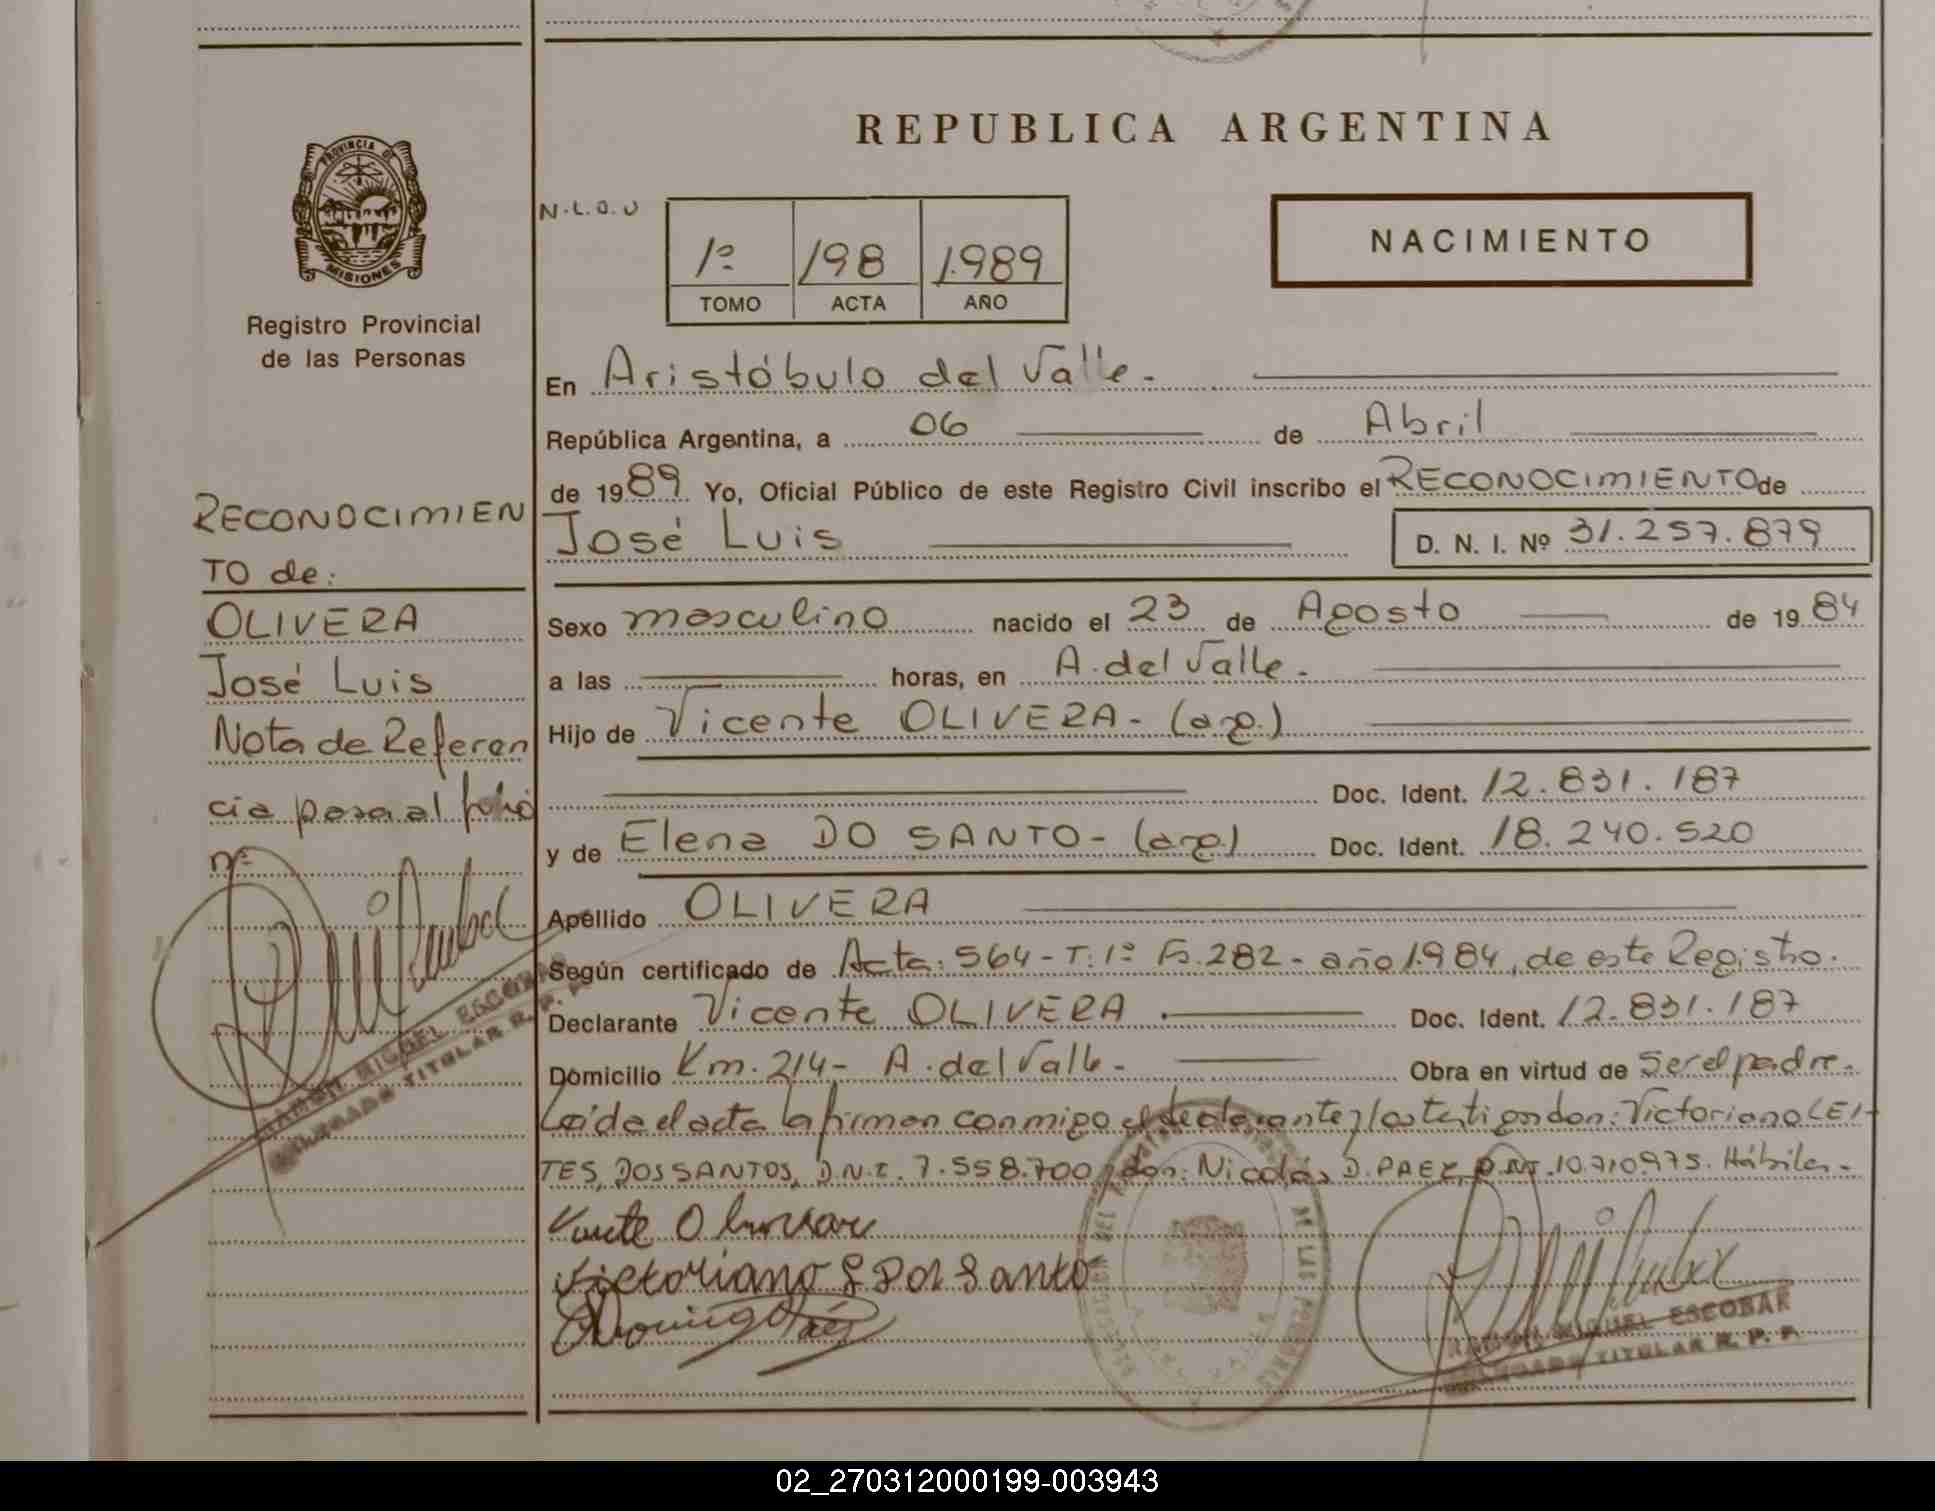 REPUBLICA ARGENTINA
PROVINCIA DE
MISIONES
Registro Provincial
de las Personas
N.L.O.U
1º 198 1.989
TOMO ACTA AÑO
NACIMIENTO
RECONOCIMIEN
TO de:
OLIVERA
José Luis
Nota de Referen
cia pasa al folio
nº
RAMON MIGUEL ESCOBAR
DELEGADO TITULAR R. P. P.
En Aristóbulo del Valle.
República Argentina, a 06 de Abril
de 19 89 Yo, Oficial Público de este Registro Civil inscribo el RECONOCIMIENTO de
José Luis D. N. I. Nº 31.257.879
Sexo masculino nacido el 23 de Agosto de 19 84
a las horas, en A. del Valle.
Hijo de Vicente OLIVERA - (arg.)
Doc. Ident. 12.831.187
y de Elena DO SANTO - (arg.) Doc. Ident. 18.240.520
Apellido OLIVERA
Según certificado de Acta: 564 - T: 1º Fs. 282 - año 1.984, de este Registro.
Declarante Vicente OLIVERA. Doc. Ident. 12.831.187
Domicilio Km. 214 - A. del Valle - Obra en virtud de ser el padre.
Leída el acta la firman conmigo el declarante y los testigos don: Victoriano LEI-
TES, DOS SANTOS, D.N.I. 7.558.700 y don: Nicolás D. PAEZ, D.N.I. 10.710.975. Hábiles.-
Victoriano L Dos Santo
RAMON MIGUEL ESCOBAR
DELEGADO TITULAR R. P. P.
02_270312000199-003943